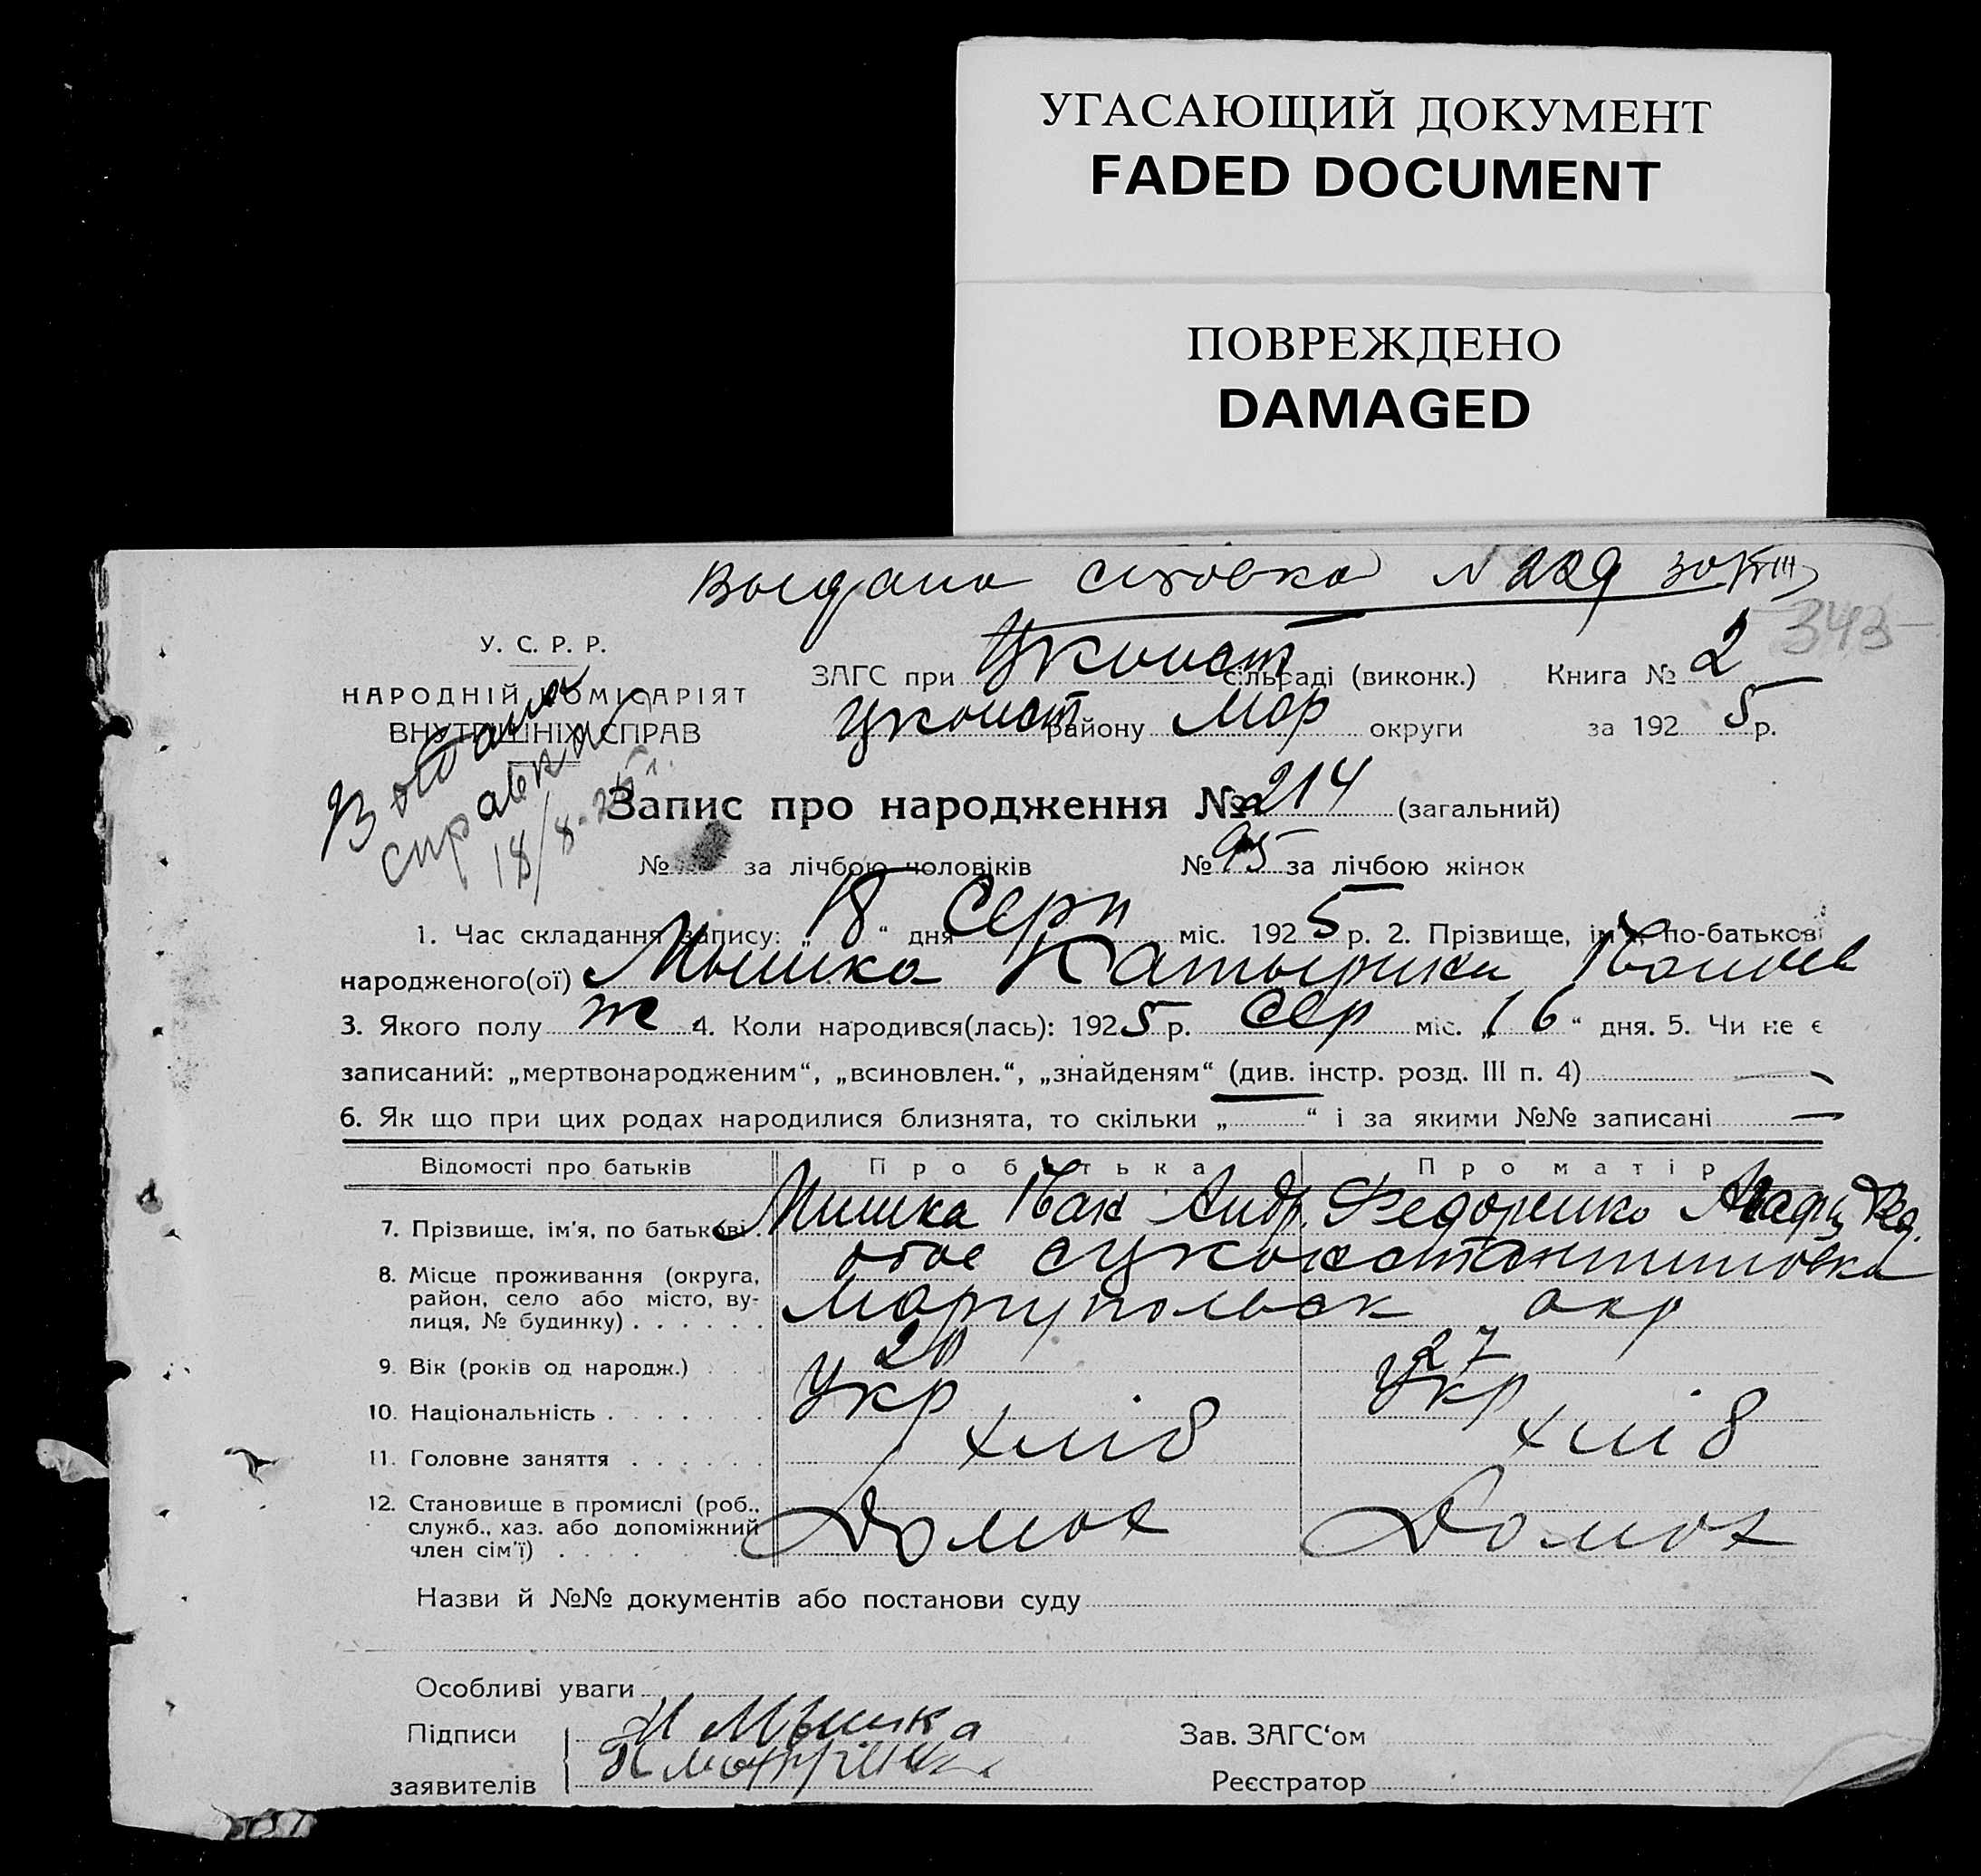 УГАСАЮЩИЙ ДОКУМЕНТ
FADED DOCUMENT
ПОВРЕЖДЕНО
DAMAGED
Выдана N 229
343
У. С. Р. Р.
НАРОДНІЙ КОМІСАРІЯТ
ВНУТРІШНІХ СПРАВ
Выдана
справка
18/8-25
ЗАГС при Цконст сільраді (виконк.) Книга № 2
Цконст району Мар округи за 1925 р.
Запис про народження № 214 (загальний)
№ за лічбою чоловіків № 95 за лічбою жінок
1. Час складання запису: „18“ дня Серп міс. 1925 р. 2. Прізвище, ім'я, по-батькові
народженого(ої) Мышка Катырина Ивановна
3. Якого полу ж 4. Коли народився(лась): 1925 р. Сер міс. „16“ дня. 5. Чи не є
записаний: „мертвонародженим“, „всиновлен.“, „знайденям“ (див. інстр. розд. III п. 4) —
6. Як що при цих родах народилися близнята, то скільки „ “ і за якими №№ записані —
Відомості про батьків Про батька Про матір
7. Прізвище, ім'я, по батькові . Мишка Иван Андр. Федоренко Фед.
8. Місце проживання (округа, район, село або місто, вулиця, № будинку) . . . . . . обое
Мариупольск окр
9. Вік (років од народж.) . . . 20 27
10. Національність . . . . . . . Укр Укр
11. Головне заняття . . . . . . хліб хліб
12. Становище в промислі (роб., служб., хаз. або допоміжний член сім'ї) . . . . . . Домох Домох
Назви й №№ документів або постанови суду
Особливі уваги
Підписи И Мышка
заявителів
Зав. ЗАГС‘ом
Реєстратор